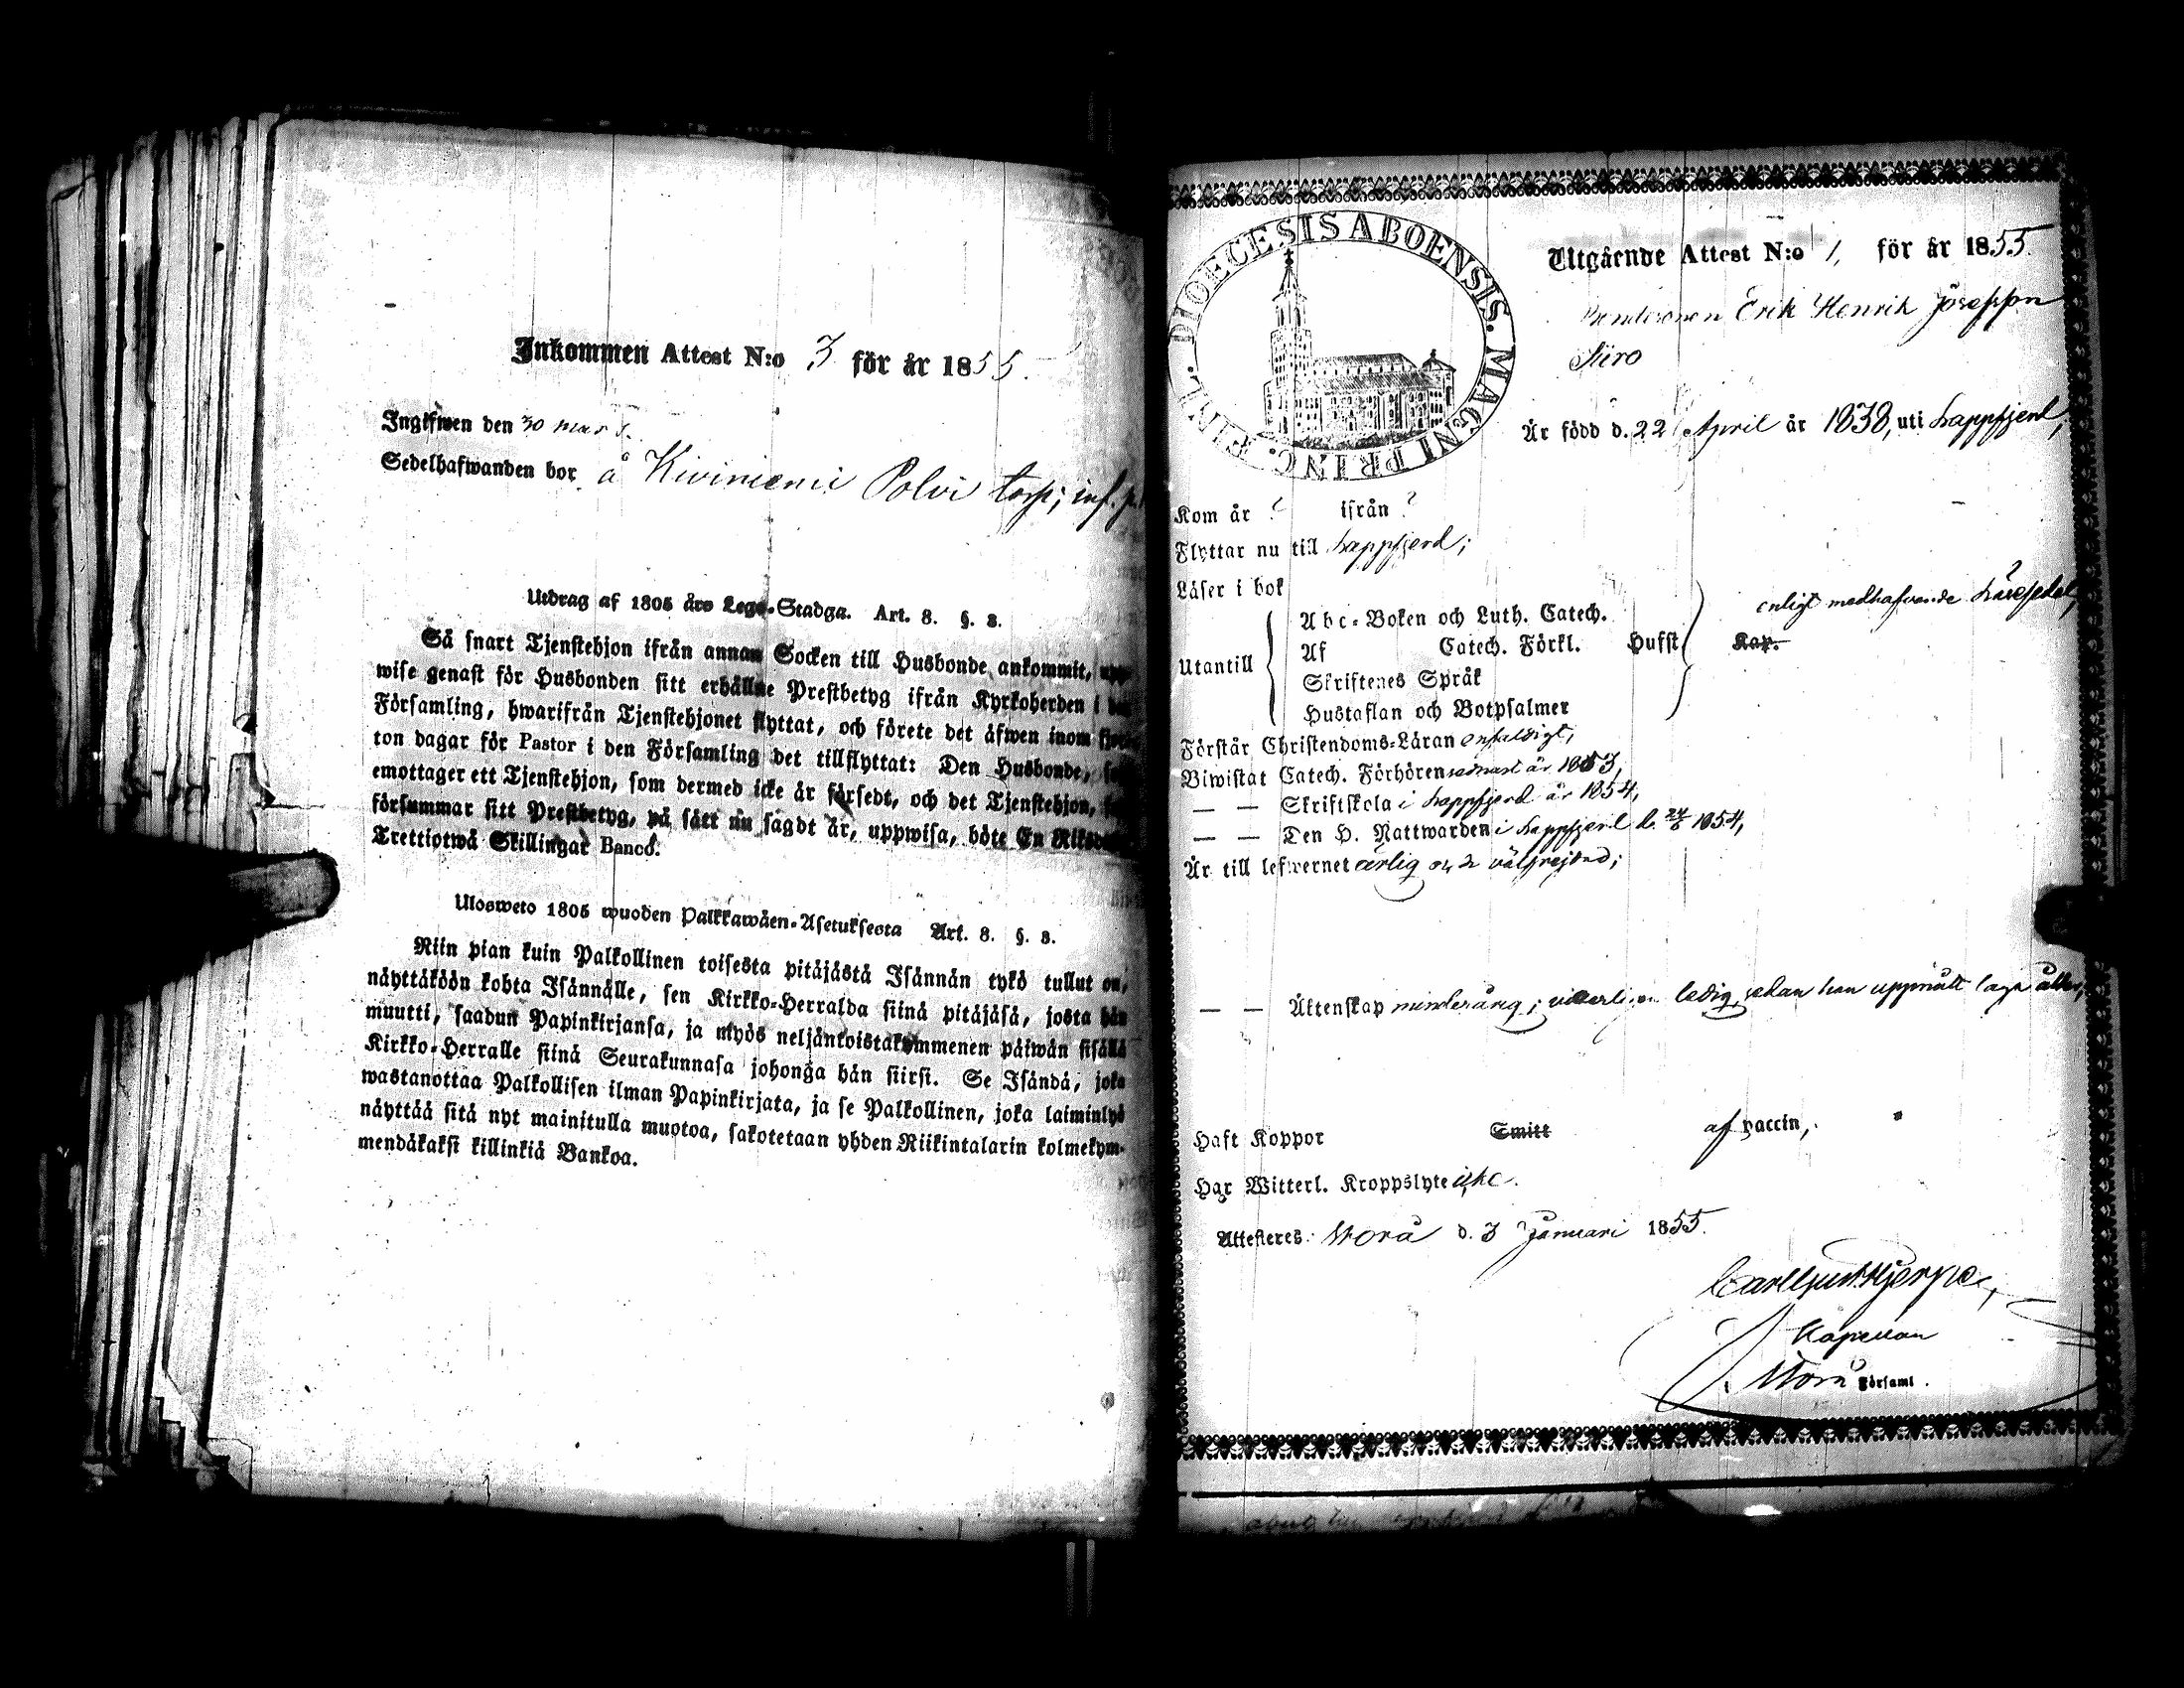 Inkommen Attest N:o 3 för år 1855.
Ingifwen den 30 mars
Sedelhafwanden bor å Kiviniemi Polvi torp; inf.
Utdrag af 1805 års Lego-Stadga. Art. 8. §. 3.
Så snart Tjenstehjon ifrån annan Socken till Husbonde ankommit, upp-
wise genast för Husbonden sitt erhållne Prestbetyg ifrån Kyrkoherden i
Församling, hwarifrån Tjenstehjonet flyttat, och förete det äfwen inom
ton dagar för Pastor i den Församling det tillflyttat: Den Husbonde,
emottager ett Tjenstehjon, som dermed icke är försedt, och det Tjenstehjon,
försummar sitt Prestbetyg, på sätt nu sagdt är, uppwisa, böte En
Trettiotwå Skillingar Banco.
Ulosweto 1805 wuoden Palkkawäen-Asetuksesta Art. 8. §. 3.
Niin pian kuin Palkollinen toisesta pitäjästä Isännän tykö tullut on,
näyttäköön kohta Isännälle, sen Kirkko-Herralda siinä pitäjäsä, josta hän
muutti, saadun Papinkirjansa, ja myös neljäntoistakymmenen päiwän sisällä
Kirkko-Herralle siinä Seurakunnasa johonga hän siirsi. Se Isändä, joka
wastanottaa Palkollisen ilman Papinkirjata, ja se Palkollinen, joka laiminlyö
näyttää sitä nyt mainitulla muotoa, sakotetaan yhden Riikintalarin kolmekym-
mendäkaksi killinkiä Bankoa.
DIOECESIS ABOENSIS. MAGNI PRINC. FINL.
Utgående Attest N:o 1, för år 1855.
Bondesonen Erik Henrik Josefsson
Siiro
År född d. 22 April år 1838, uti Lappfjerd,
Kom år ? ifrån ?
Flyttar nu till Lappfjerd;
Läser i bok
enligt medhafvande Läsesedel,
Utantill
Abc-Boken och Luth. Catech.
Af Catech. Förkl. Hufst Kap.
Skriftenes Språk
Hustaflan och Botpsalmer
Förstår Christendoms-Läran enfaldigt,
Biwistat Catech. Förhören sednast år 1853,
— — Skriftskola i Lappfjerd år 1854,
— — Den H. Nattwarden i Lappfjerd d. 24/6 1854,
Är till lefwernet ärlig och välfrejdad;
— — Äktenskap minderårig; vitterligen ledig, sedan han uppnått laga ålder,
Haft Koppor Smitt af vaccin,
Har Witterl. Kroppslyte icke.
Attesteres: Storå d. 3 Januari 1855.
Carl Gust. Hjerpe,
Kapellan
i Storå Församl.